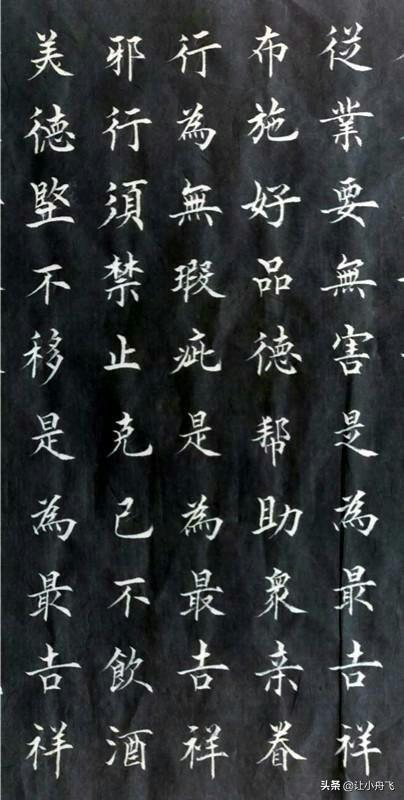 従業要無害是為最吉祥
布施好品德帮助衆亲眷
行為無瑕疵是為最吉祥
邪行須禁止克己不飲酒
美德堅不移是為最吉祥
头条 @让小舟飞